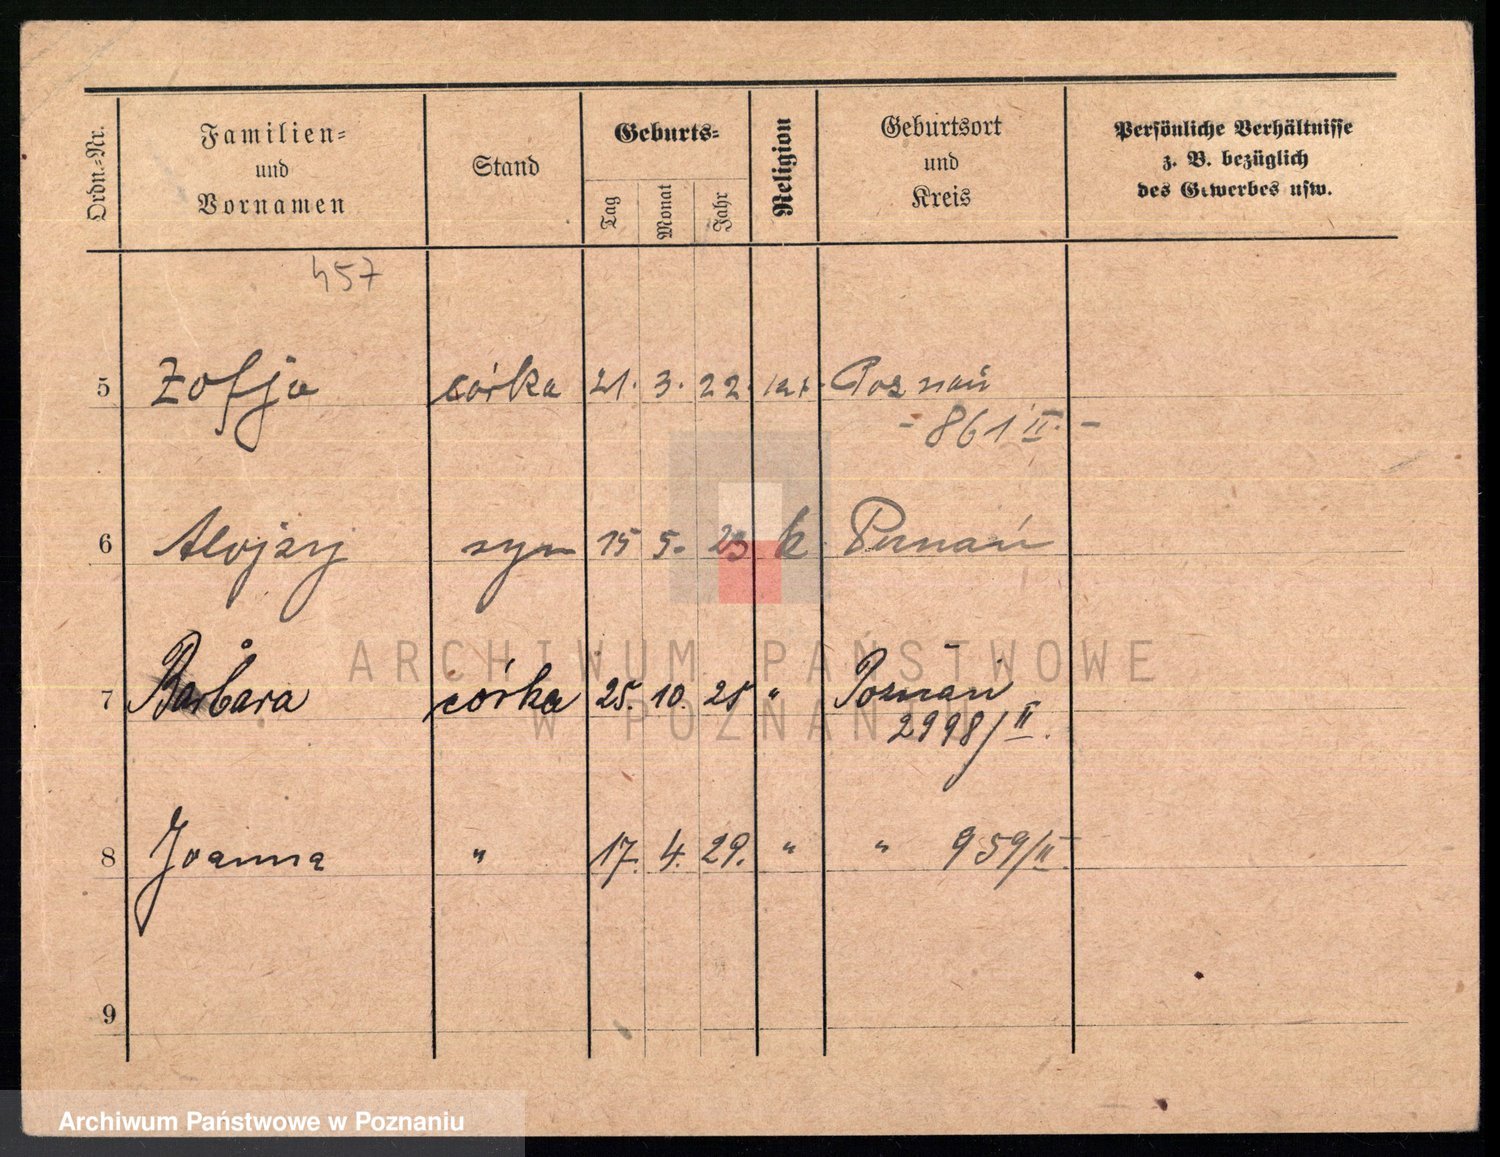 Ordn.=Nr.
Familien=
und
Vornamen
Stand
Geburts=
Tag
Monat
Jahr
Religion
Geburtsort
und
Kreis
Persönliche Verhältnisse
z. B. bezüglich
des Gewerbes usw.
457
5 Zofja córka 21. 3. 22. Poznań
- 861 II. -
6 Alojzy syn 15 5. 23 k Poznań
ARCHIWUM PAŃSTWOWE
W POZNANIU
7 Barbara córka 25. 10. 25 " Poznań
2998/II.
8 Joanna " 17. 4. 29. " " 959/II.
9
Archiwum Państwowe w Poznaniu